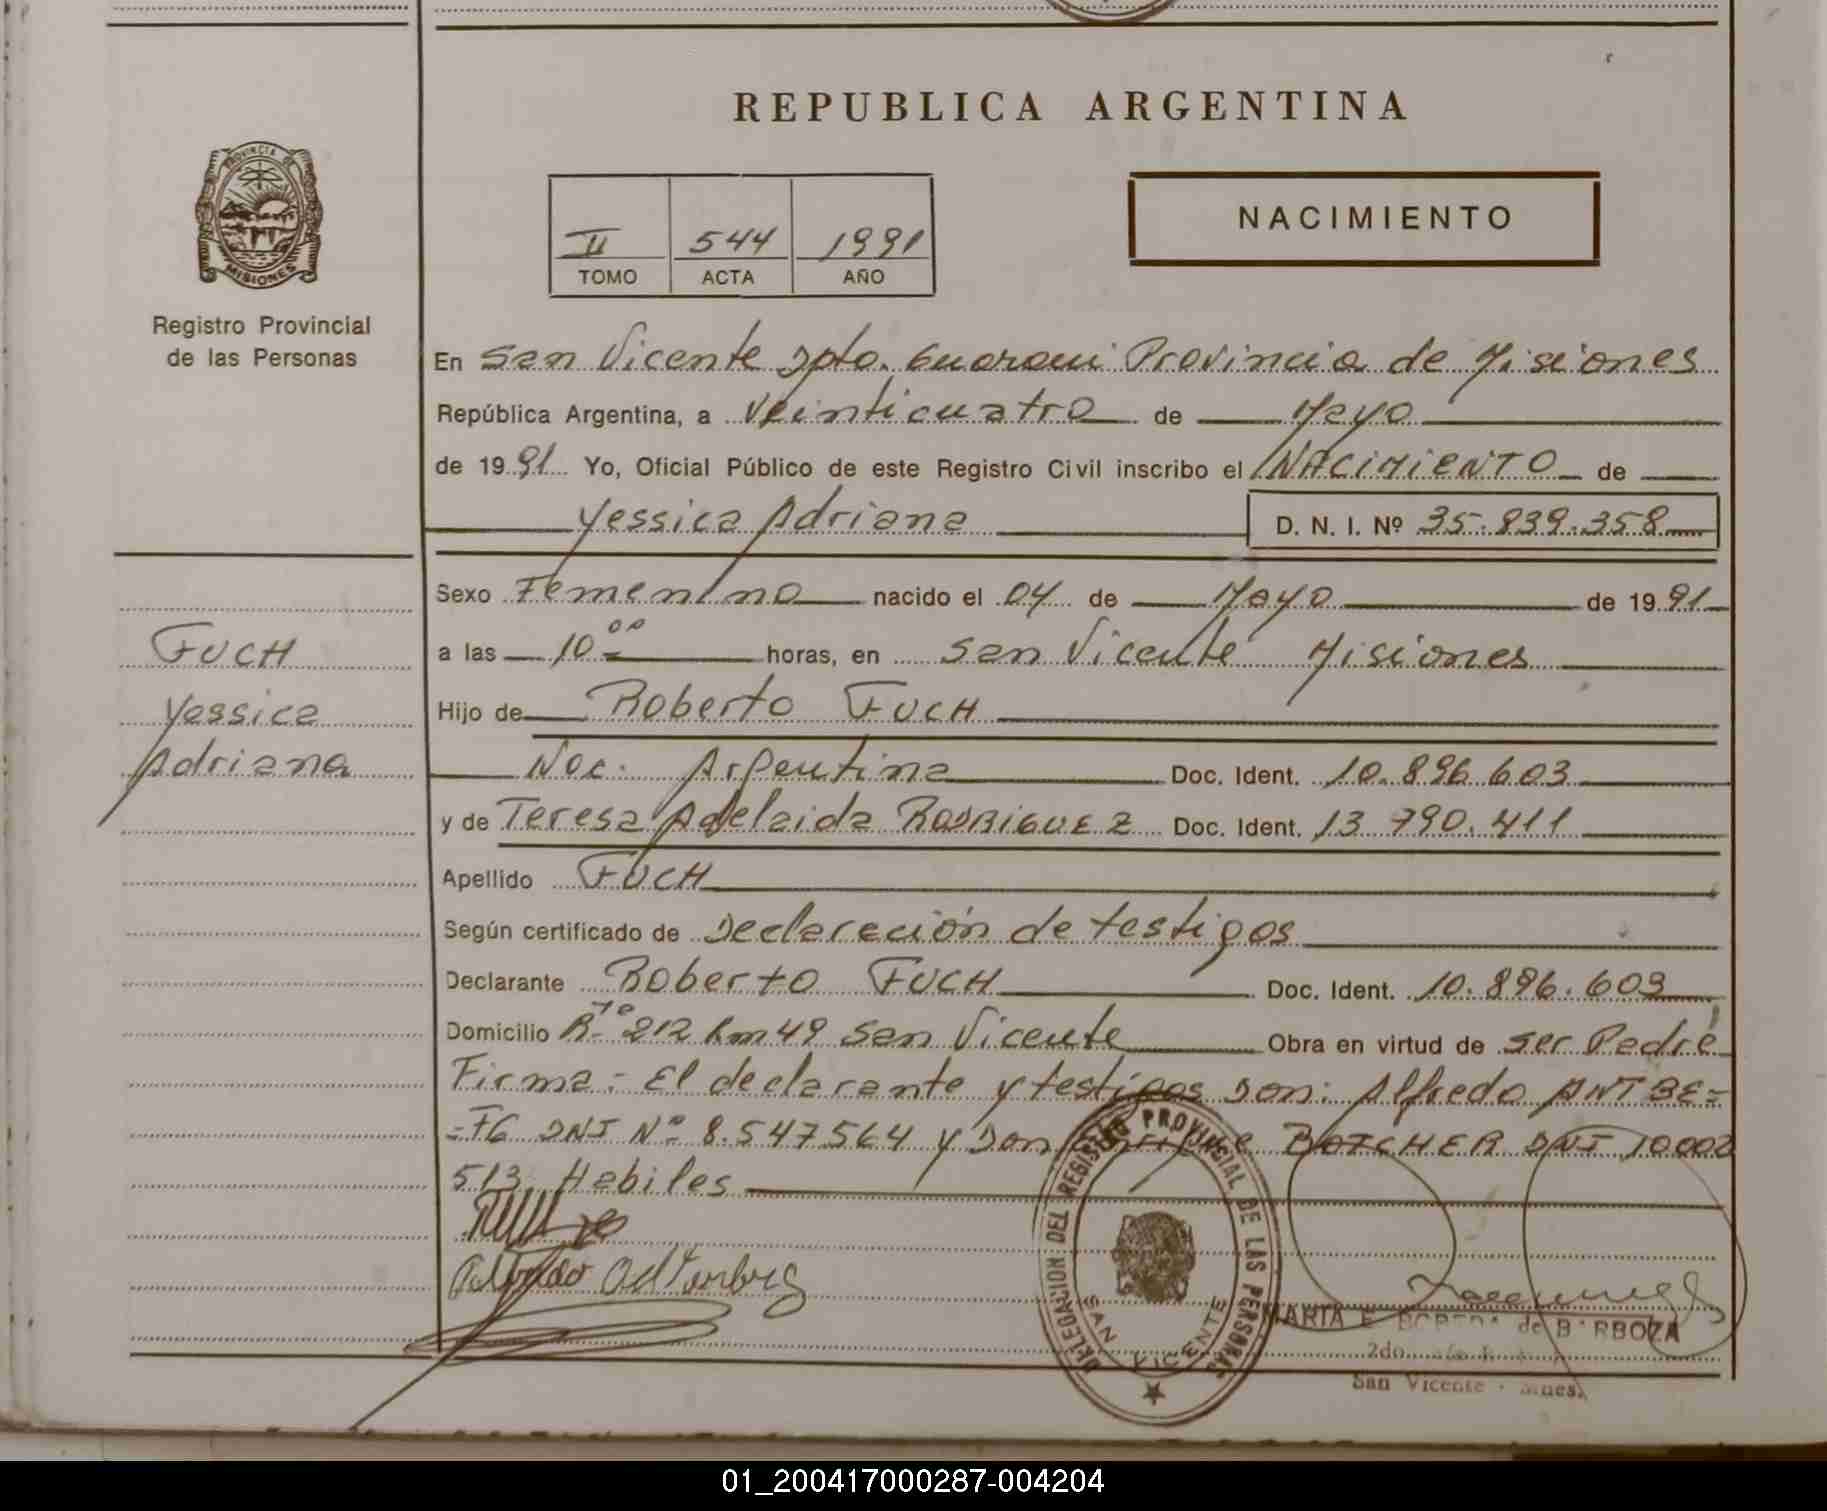 REPUBLICA ARGENTINA
PROVINCIA DE
MISIONES
Registro Provincial
de las Personas
II 544 1991
TOMO ACTA AÑO
NACIMIENTO
En San Vicente Dpto. Guarani Provincia de Misiones
República Argentina, a Veinticuatro de Mayo
de 1991 Yo, Oficial Público de este Registro Civil inscribo el NACIMIENTO de
Yessica Adriana D. N. I. Nº 35.839.358
Sexo Femenino nacido el 04 de Mayo de 1991
a las 10 00 horas, en San Vicente Misiones
Hijo de Roberto FUCH
Nac. Argentina Doc. Ident. 10.896.603
y de Teresa Adelaida RODRIGUEZ Doc. Ident. 13 790.411
Apellido FUCH
Según certificado de Declaración de testigos
Declarante Roberto FUCH Doc. Ident. 10.896.603
Domicilio R. 212 km 49 San Vicente Obra en virtud de ser Padre
Firma: El declarante y testigos Don: Alfredo ANTBE=
=FG DNI Nº 8.547564 y Don BOTCHER DNI 10002
513 Habiles
FUCH
Yessica
Adriana
DELEGACION DEL REGISTRO PROVINCIAL DE LAS PERSONAS
SAN VICENTE
MARIA E. de BARBOZA
2do.
San Vicente - Mnes.
01_200417000287-004204